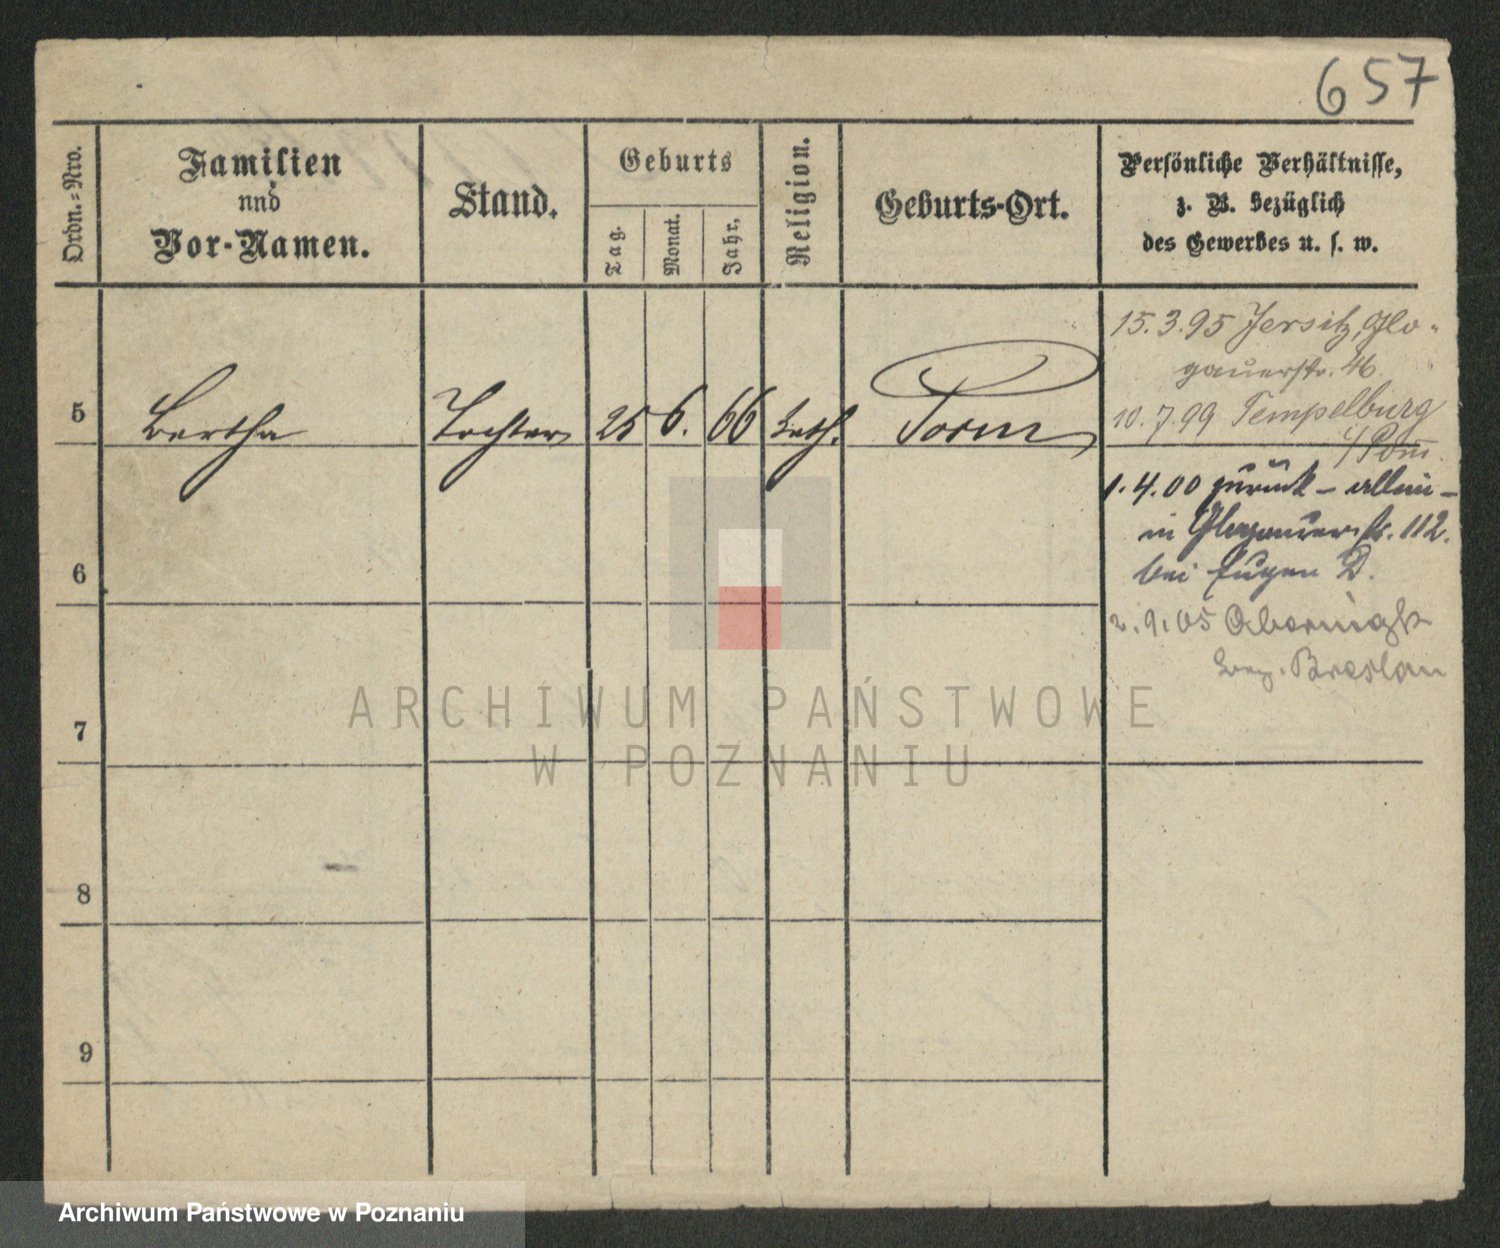 657
Ordn.-Nro.
Familien
und
Vor-Namen.
Stand.
Geburts
Tag.
Monat.
Jahr.
Religion.
Geburts-Ort.
Persönliche Verhältnisse,
z. B. bezüglich
des Gewerbes u. s. w.
15.3.95 Jersitz, Glo-
gauerstr. 46.
5 Bertha Tochter 25 6. 66 kath.
10.7.99 Tempelburg
i/Pom.
1.4.00 zurück - allein -
in Glogauerstr. 112.
6
bei Eugen D.
2.9.05 Obernigk
Bez. Breslau
7
8
9
ARCHIWUM PAŃSTWOWE
W POZNANIU
Archiwum Państwowe w Poznaniu